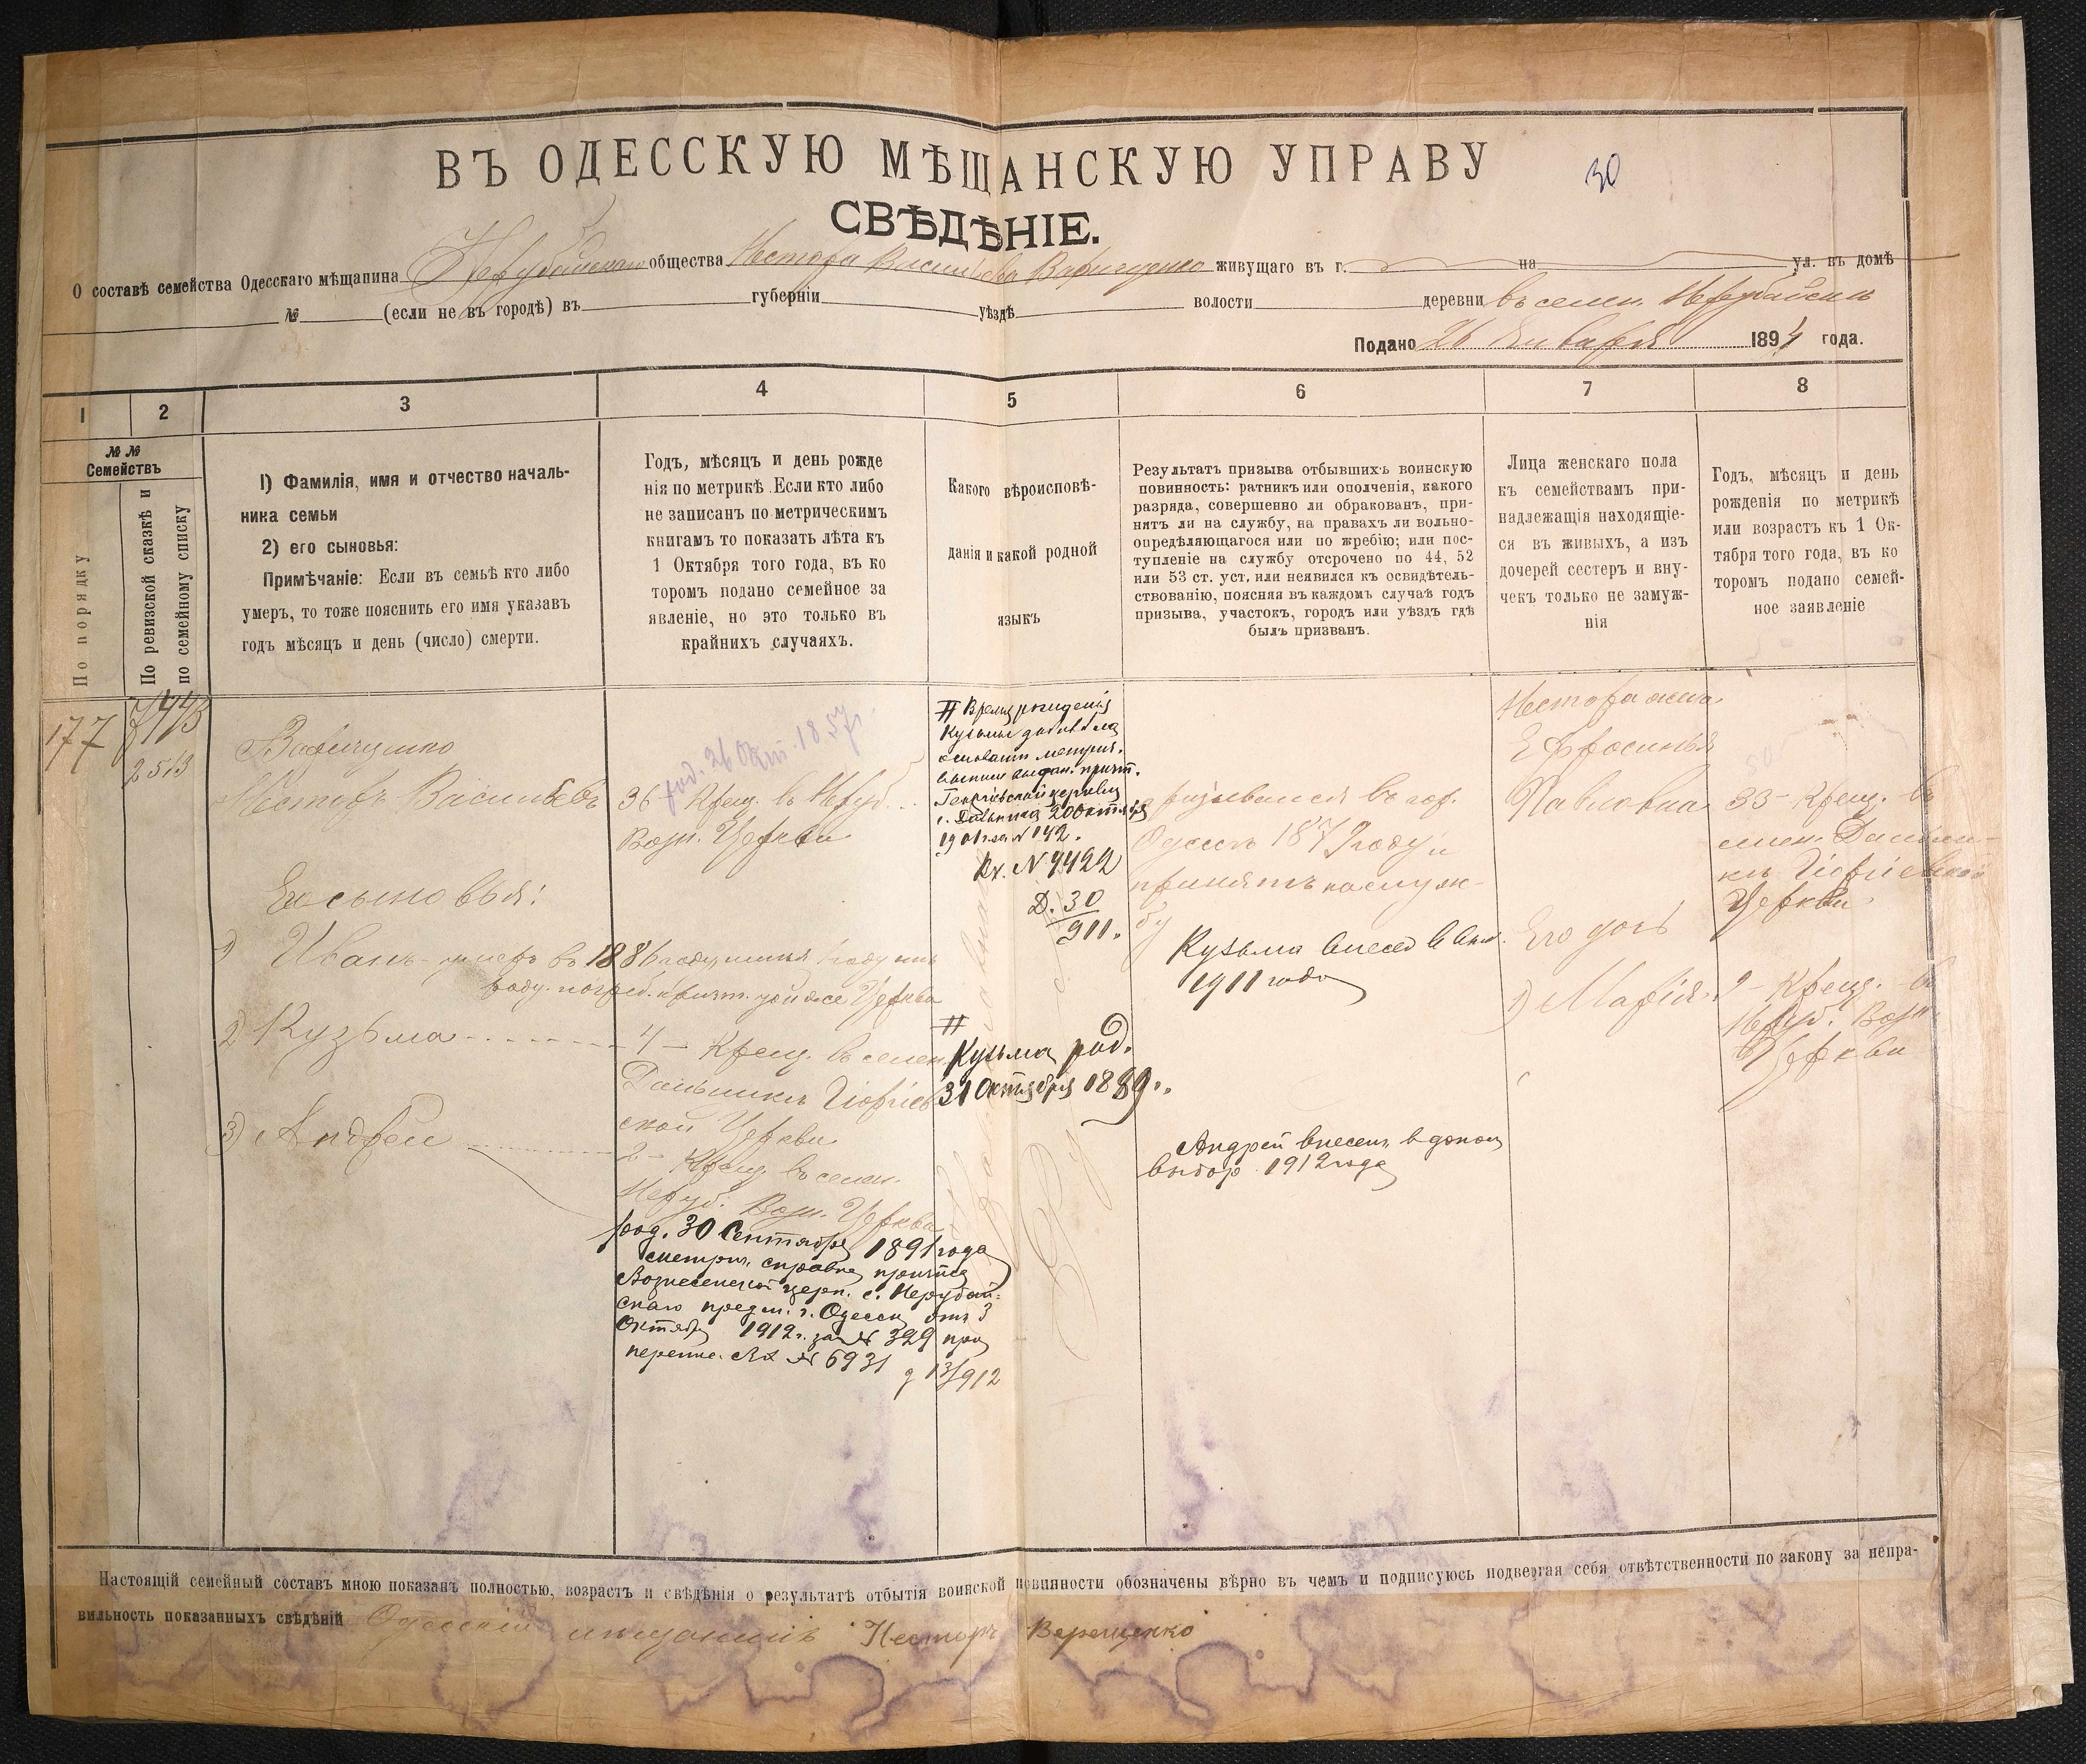 ВЪ ОДЕССКУЮ МѢЩАНСКУЮ УПРАВУ
30
СВѢДѢНІЕ.
О составѣ семейства Одесскаго мѣщанина Нерубайскаго общества Нестора Васильева живущаго въ г. на ул. въ домѣ
№ (если не въ городѣ) въ губерніи уѣздѣ волости деревни въ селен. Нерубайскѣ
Подано 26 Января 1894 года.
1 2 3 4 5 6 7 8
№ №
Семействъ
По порядку
По ревизской сказкѣ и
по семейному списку
1) Фамилія, имя и отчество началь-
ника семьи
2) его сыновья:
Примѣчаніе: Если въ семьѣ кто либо
умеръ, то тоже пояснить его имя указавъ
годъ мѣсяцъ и день (число) смерти.
Годъ, мѣсяцъ и день рожде
нія по метрикѣ. Если кто либо
не записанъ по метрическимъ
книгамъ то показать лѣта къ
1 Октября того года, въ ко
торомъ подано семейное за
явленіе, но это только въ
крайнихъ случаяхъ.
Какого вѣроисповѣ-
данія и какой родной
языкъ
Результатъ призыва отбывшихъ воинскую
повинность: ратникъ или ополченія, какого
разряда, совершенно ли обракованъ, при-
нятъ ли на службу, на правахъ ли вольно-
опредѣляющагося или по жребію; или пос-
тупленіе на службу отсрочено по 44, 52
или 53 ст. уст. или неявился къ освидѣтель-
ствованію, поясняя въ каждомъ случаѣ годъ
призыва, участокъ, городъ или уѣздъ гдѣ
былъ призванъ.
Лица женскаго пола
къ семействамъ при-
надлежащія находящіе-
ся въ живыхъ, а изъ
дочерей сестеръ и вну-
чекъ только не замуж-
нія
Годъ, мѣсяцъ и день
рожденія по метрикѣ
или возрастъ къ 1 Ок-
тября того года, въ ко
торомъ подано семей-
ное заявленіе
177
2513
Несторъ Васильевъ
Его сыновья:
1) Иванъ - умеръ въ 1886 году
2) Кузьма
3) Андрей
род. 26 Окт. 1857 г.
36 - Крещ. въ Неруб.
Возн. Церкви
4 - Крещ. въ селен.
Дальникъ Георгіев
ской Церкви
2 - Крещ. въ селен.
Неруб. Возн. Церкви
род. 30 Сентября 1891 года
метрич. справка причта
Вознесенской церк. с. Нерубай-
скаго предм. г. Одессы отъ 3
Октября 1912 г. за № 329 при
Вх № 6931
д 13/912
# Время рожденія
Кузьмы
основаніи метрич.
выписи выдан. причт.
Георгіевской церкви
с. Дальника 20 октября
Вх. № 4422
Д. 30
911.
#
Кузьма род.
31 Октября 1889 г.
призывался въ гор.
Одессѣ 1879 году и
принятъ на служ-
бу
Кузьма внесен в
1911 года
Андрей внесенъ в допол
выбор 1912 года
Нестора жена
Ефросинья
Павловна
Его дочь
1) Марія
33 - Крещ. въ
селен. Дальни-
кѣ Георгіевской
Церкви
Крещ. въ
Неруб. Возн
Церкви
Настоящій семейный составъ мною показанъ полностью, возрастъ и свѣдѣнія о результатѣ отбытія воинской повинности обозначены вѣрно въ чемъ и подписуюсь подвергая себя отвѣтственности по закону за непра-
вильность показанныхъ свѣдѣній Одесскій мѣщанинъ Несторъ Верещенко